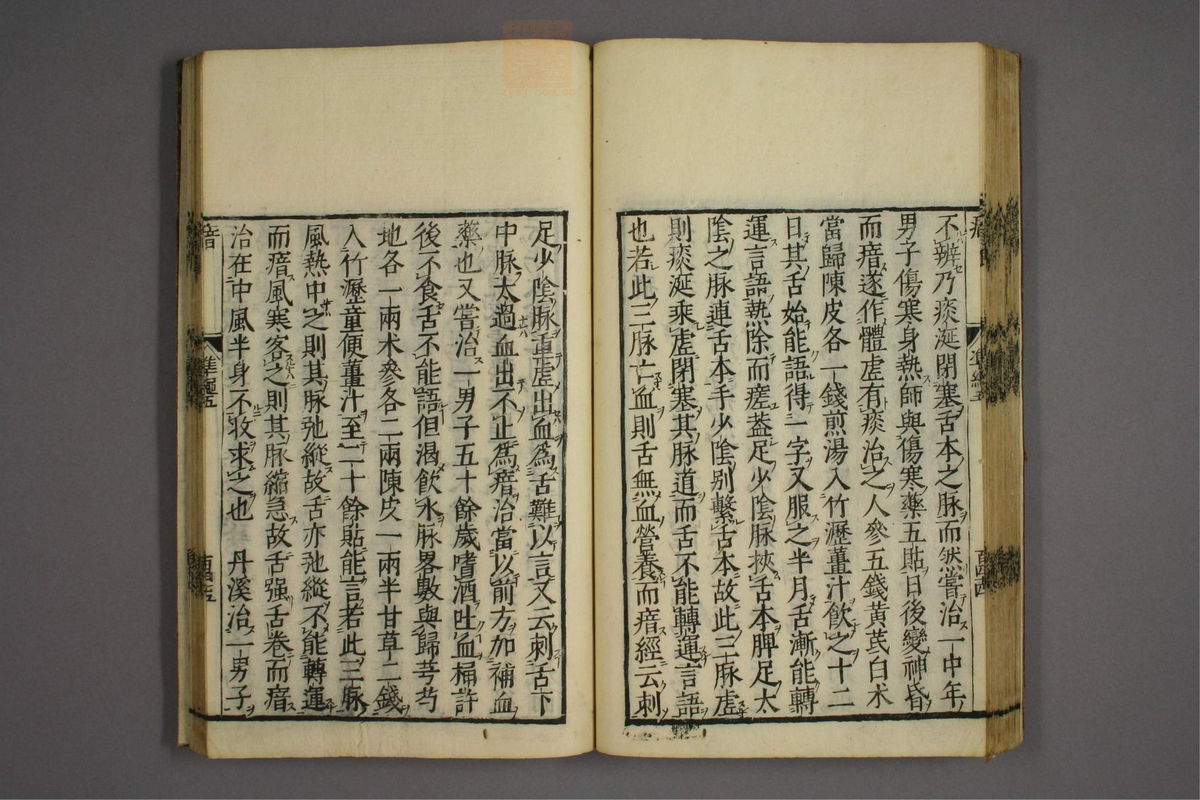 不辨乃痰涎閉塞舌本之脉而然嘗治一中年
男子傷寒身熱師與傷寒藥五貼日後變神昏
而瘖遂作體虛有痰治之人參五錢黃茋白术
當歸陳皮各一錢煎湯入竹瀝薑汁飲之十二
日其舌始能語得一字又服之半月舌漸能轉
運言語熱除而痊葢足少陰脉挾舌本脾足太
陰之脉連舌本手少陰别繫舌本故此三脉虛
則痰涎乘虛閉塞其脉道而舌不能轉運言語
也若此三脉亡血則舌無血營養而瘖經云刺
足少陰脉重虛出血為舌難以言又云刺舌下
中脉太過血出不止為瘖治當以前方加補血
藥也又嘗治一男子五十餘歲嗜酒吐血桶許
後不食舌不能語但渴飲水脉畧數與歸芎芍
地各一兩术參各二兩陳皮一兩半甘草二錢
入竹瀝童便薑汁至二十餘貼能言若此三脉
風熱中之則其脉弛縱故舌亦弛縱不能轉運
而瘖風寒客之則其脉縮急故舌强舌卷而瘖
治在中風半身不收求之也　丹溪治一男子
瘖
準繩五
百四五